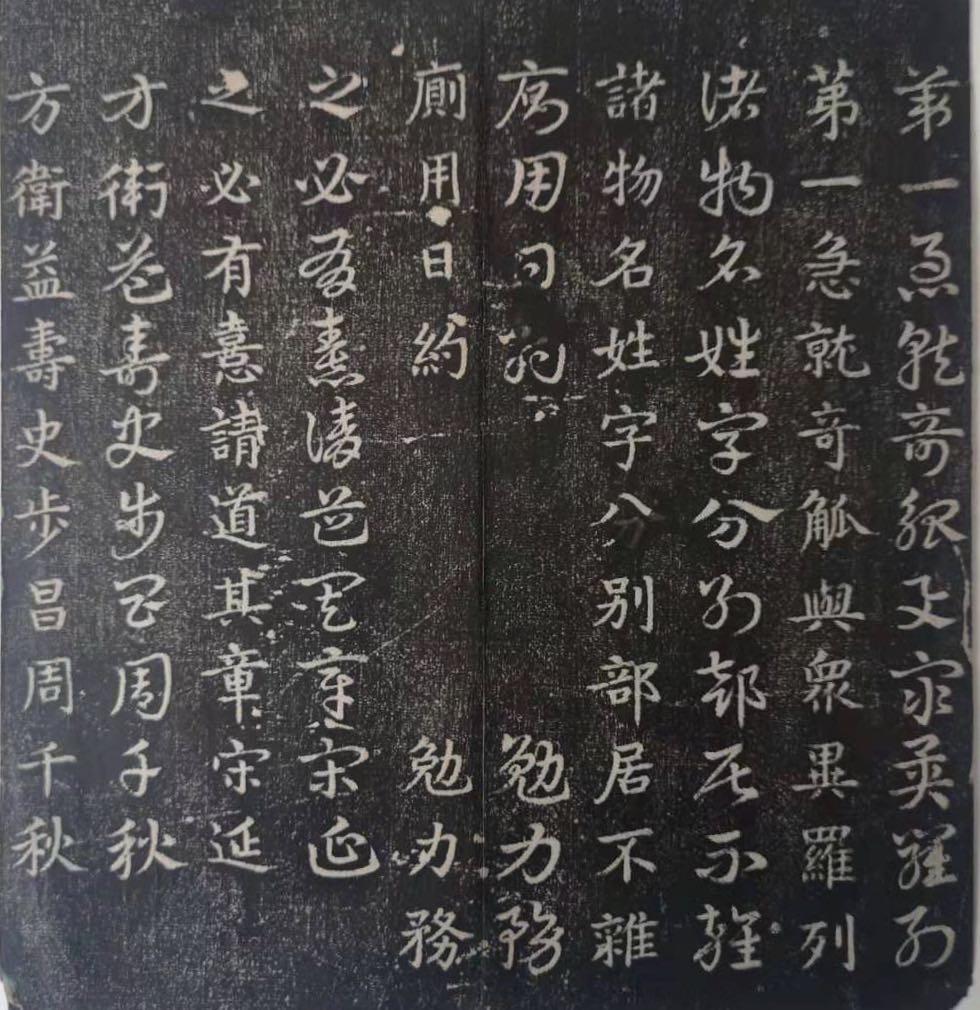 第一急就奇觚與眾異羅列
第一急就奇觚與眾異羅列
諸物名姓字分别部居不雜
諸物名姓字分别部居不雜
廁用日約 勉力務
廁用日約 勉力務
之必有憙請道其章宋延
之必有憙請道其章宋延
方衛益壽史步昌周千秋
方衛益壽史步昌周千秋